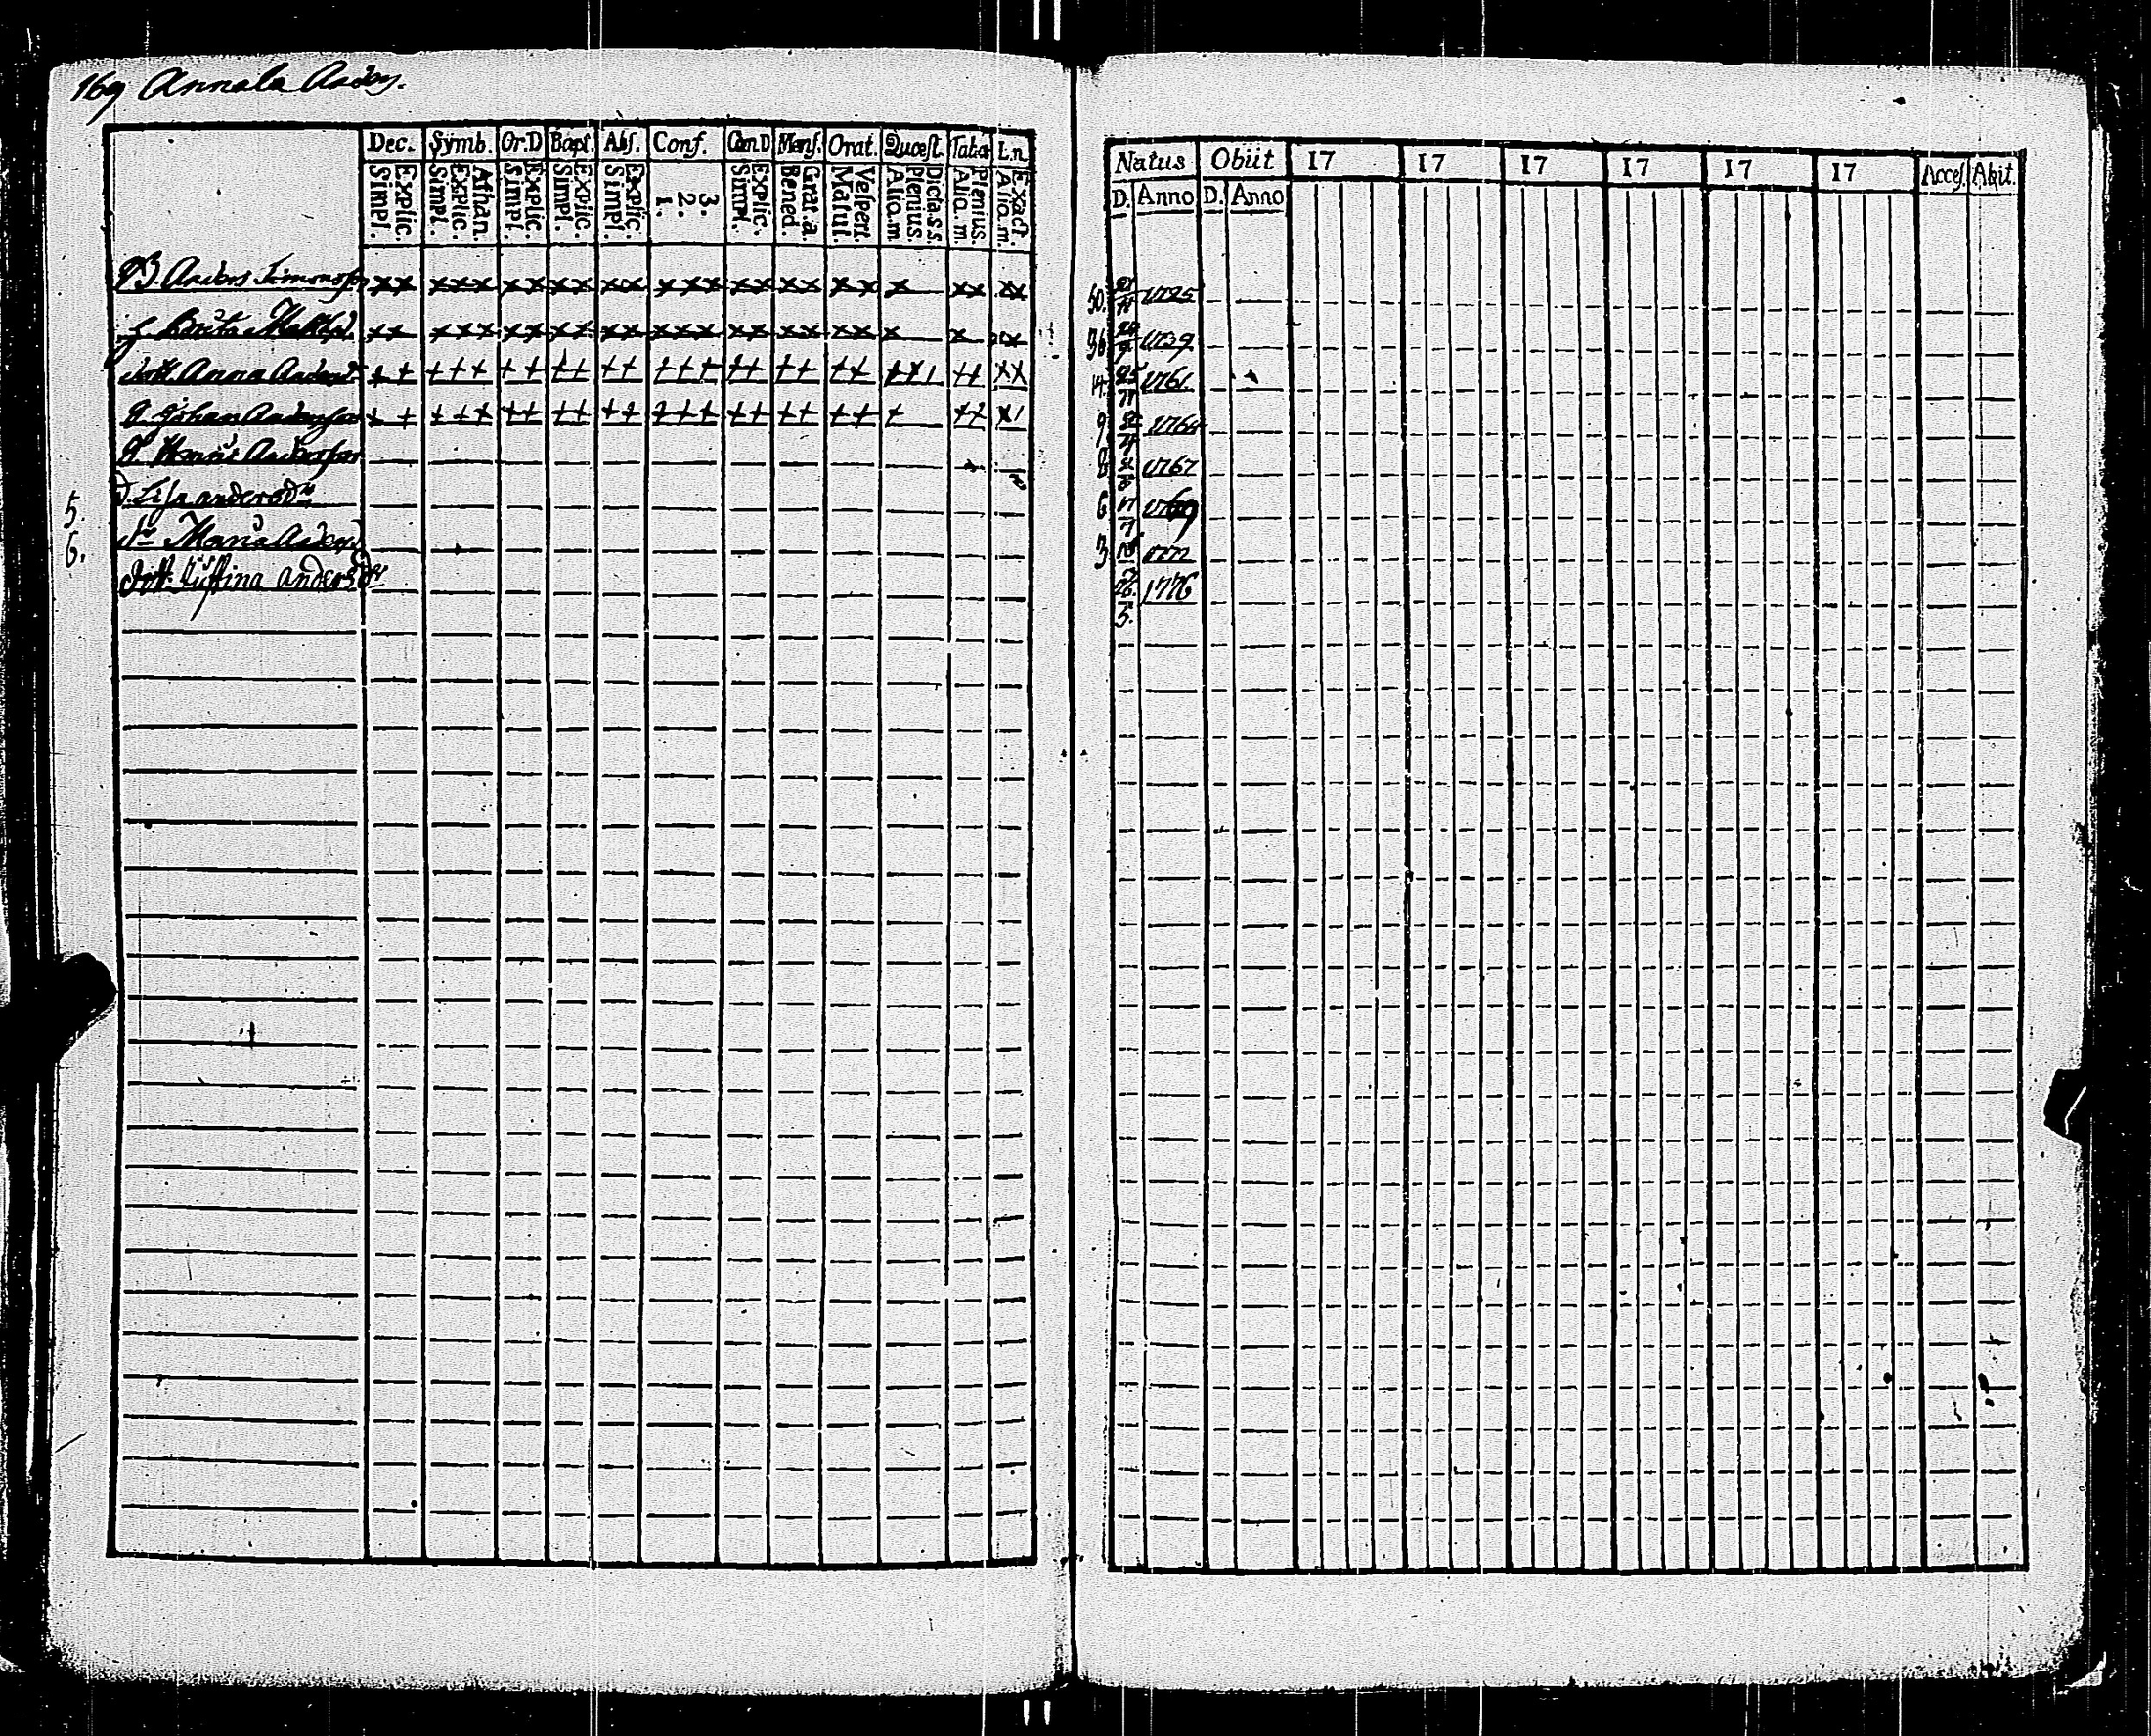 169 Annala Anders.
Dec. Symb. Or.D Bapt. Abs. Conf. Cœn.D Mens. Orat. Quæst. Tabœ L.n
Simpl. Explic. Simpl. Explic. Athan. Simpl. Explic. Simpl. Explic. Simpl. Explic. 1. 2. 3. Simpl. Explic. Bened. Grat. a. Matut. Vespert. Aliq.m Plenius Dicta.s.s. Aliq.m. Plenius. Aliq.m. Exact.
Natus Obiit 17 17 17 17 17 17 Acces. Abit.
D. Anno D. Anno
B. Anders Simonsson xx xxx xx xx xx xxx xx xx xx x xx xx 50. 1725
h Brita Matthsd. xx xxx xx xx xx xxx xx xx xx x x xx 36 1739
dott. Anna Andersd. ++ +++ ++ ++ ++ +++ ++ ++ ++ ++ xx 14. 25 1761
S. Johan Andersson ++ +++ ++ ++ ++ +++ ++ ++ ++ + ++ x 9 1764
S. Andersson 8 1767
5. D. Lisa andersdr 6 17 1769
6. dr Maria Andersd 3 1772
dott. Justina andersdr 26. 5. 1776